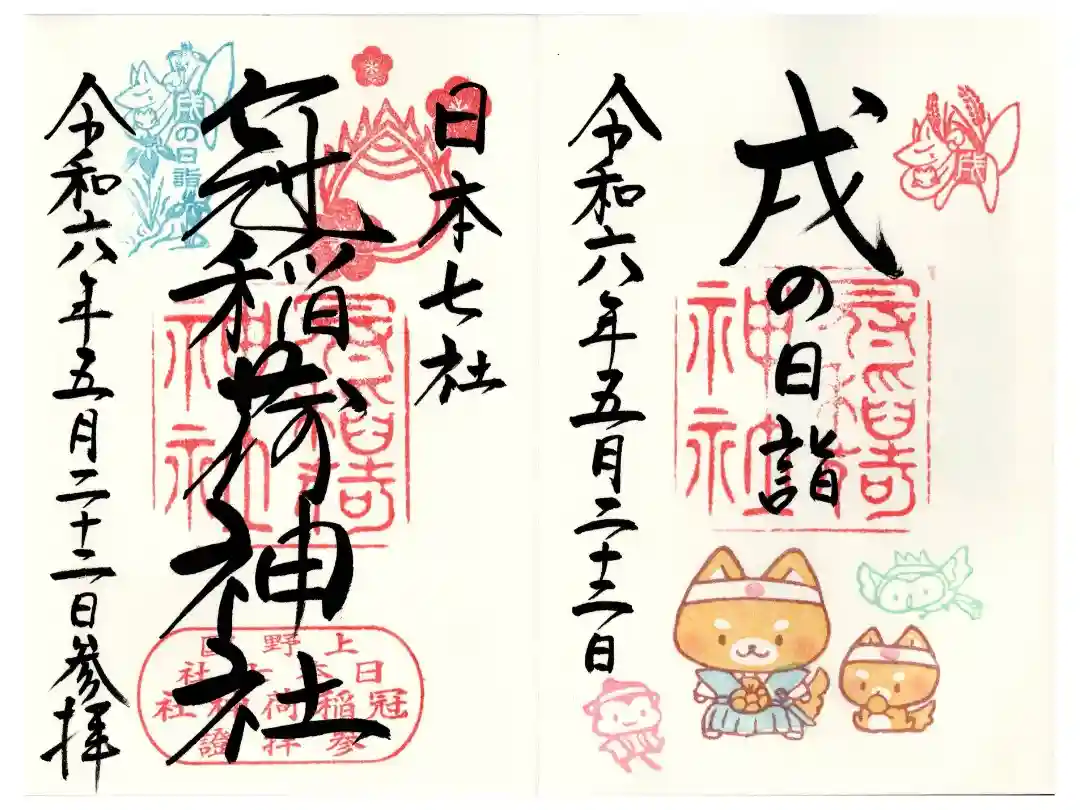 戌
戌の日詣
冠稲荷
神社
令和六年五月二十二日
日本七社
冠稲荷神社
冠稲荷
神社
戌の日詣
令和六年五月二十二日参拝
上野
日本七社
冠稲荷神社
參拝證